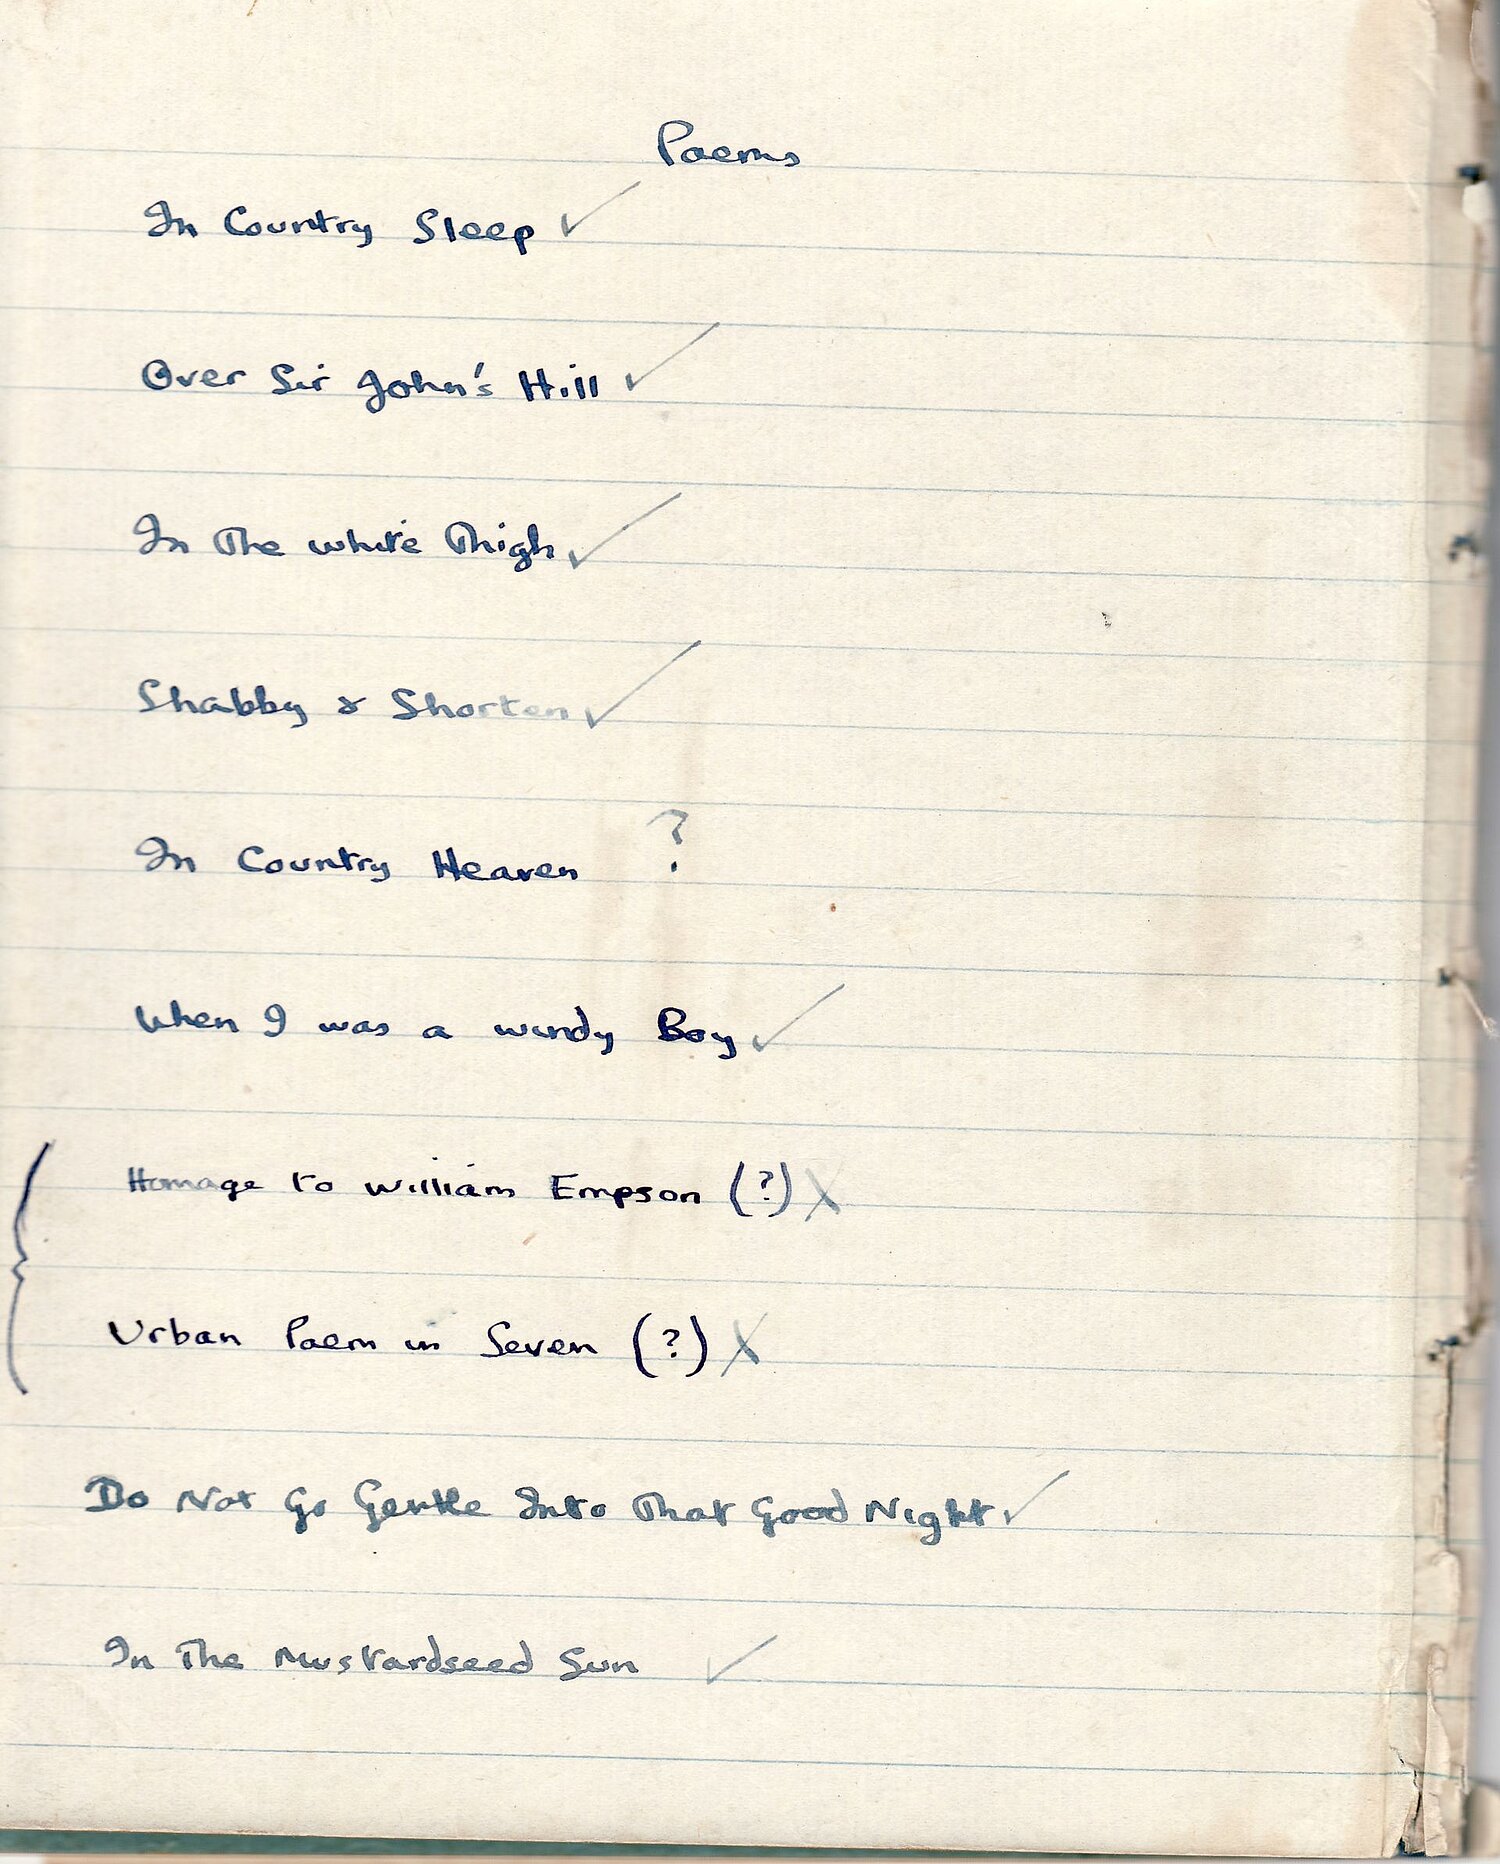 Poems
In Country Sleep ✓
Over Sir John's Hill ✓
In The White Thigh ✓
Shabby & Shorten ✓
In Country Heaven ?
When I was a windy Boy ✓
Homage to William Empson (?) X
Urban Poem in Seven (?) X
Do Not Go Gentle Into That Good Night ✓
In The Mustardseed Sun ✓